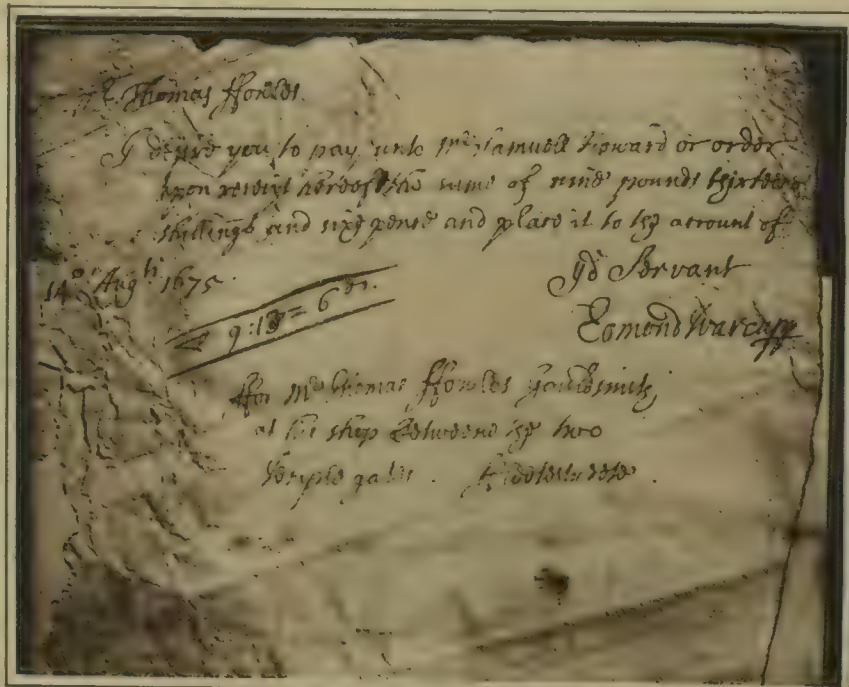 Thomas ffowles
I desire you to pay unto Mr Samuell Howard or order
upon receipt hereof the sume of nine pounds thirteene
shillings and six pence and place it to the account of
14o Augti 1675
yor Servant
9:13=6
Edmond Warcupp
ffor Mr Thomas ffowles Gouldsmith,
at his shop Betweene the two
Temple gates. ffleetestreete